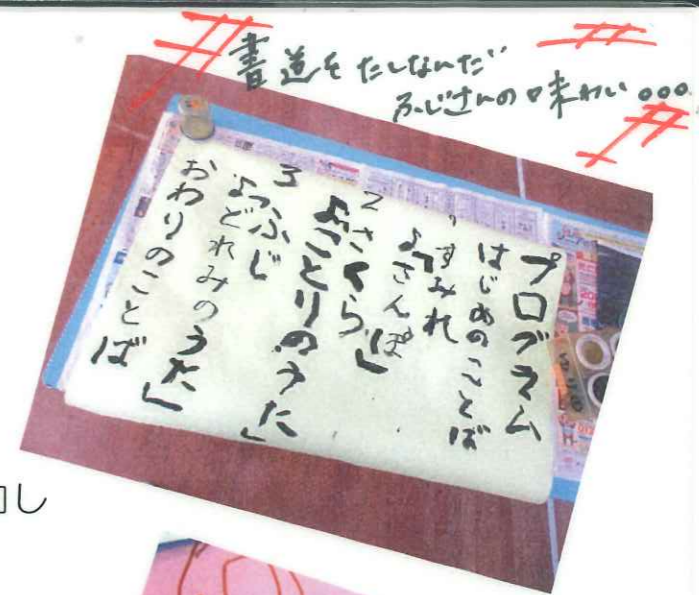 書道をたしなんだ
ふじさんの味わい。。。
プログラム
はじめのことば
1 すみれ
♪「さんぽ」
2 さくら
♪ことりのうた」
3 ふじ
♪どれみのうた」
おわりのことば
し